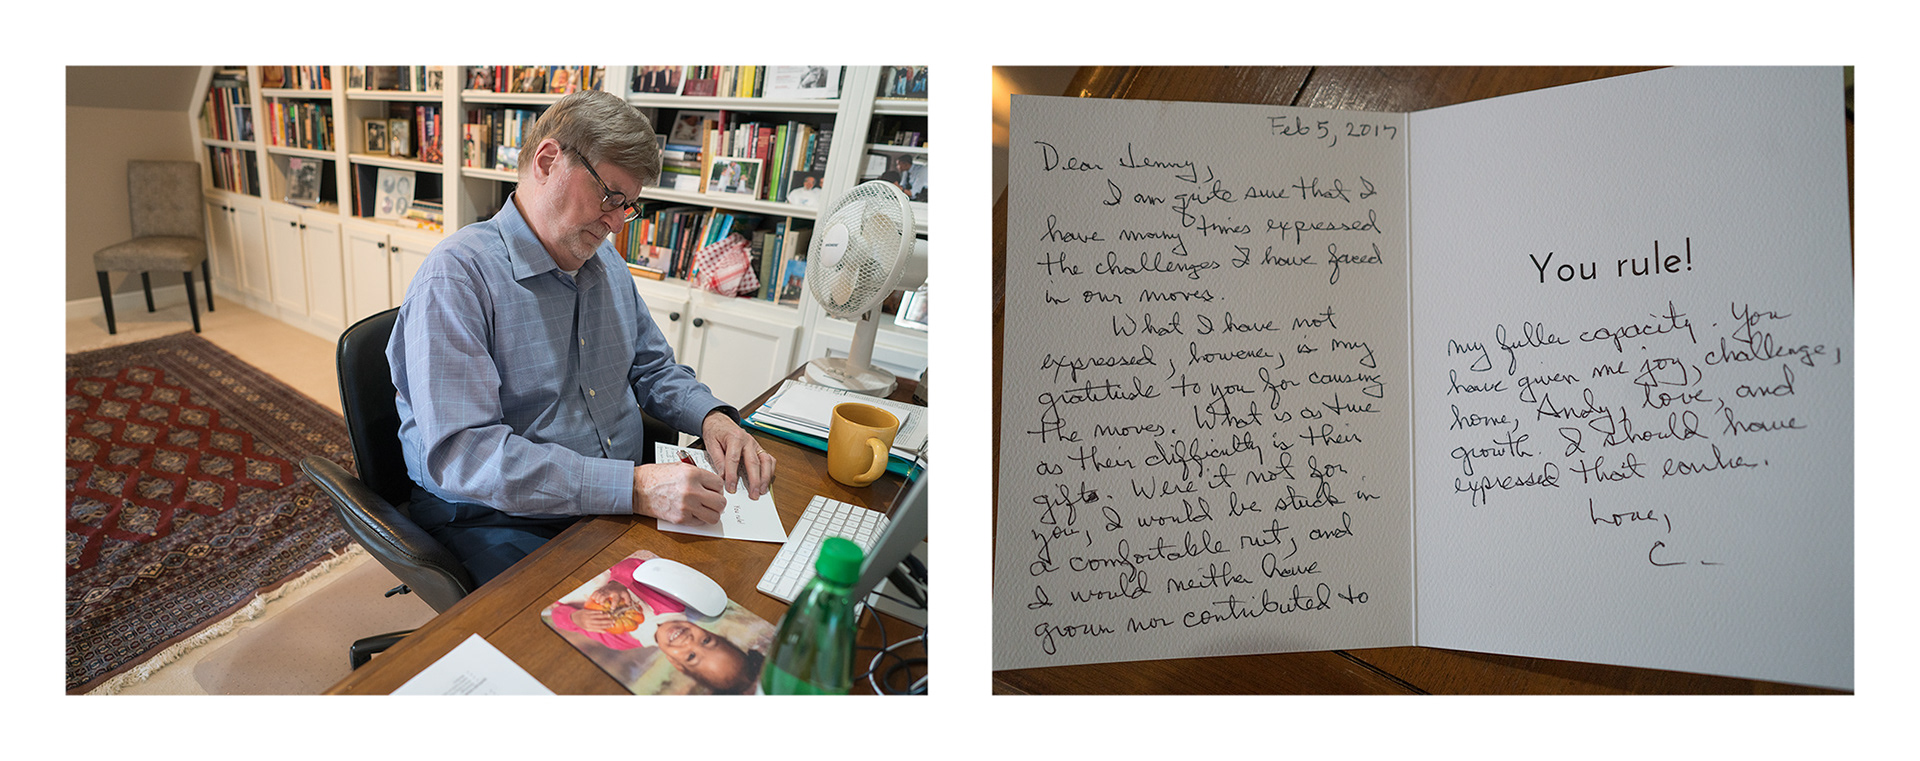 You rule!
Feb 5, 2017
Dear Jenny,
I am quite sure that I
have many times expressed
the challenges I have faced
in our moves.
What I have not
expressed, however, is my
gratitude to you for causing
the moves. What is as true
as their difficulty is their
gifts. Were it not for
you, I would be stuck in
a comfortable rut, and
I would neither have
grown nor contributed to
You rule!
my fuller capacity. You
have given me joy, challenge,
home, Andy, love, and
growth. I should have
expressed that earlier.
Love,
C –